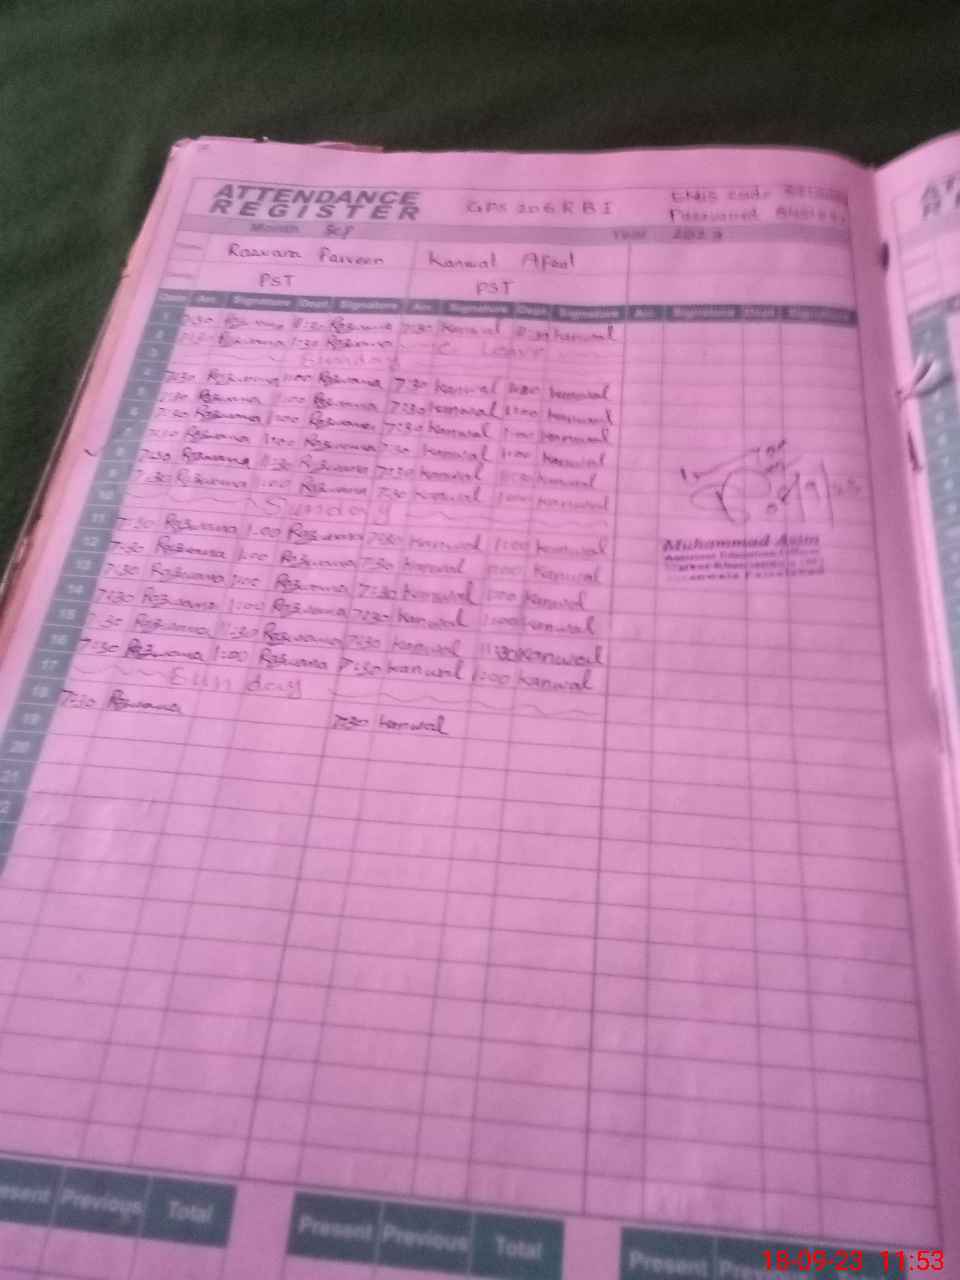 ATTENDANCE
REGISTER
GPS 206 RB I
EMIS code
Month Sep Year 2023
Rozwana Parveen Kanwal Afzal
PST PST
Date Arr. Signature Dept. Signature Arr. Signature Dept. Signature Arr. Signature Dept. Signature
1 7:30 Rozwana 11:30 Rozwana 7:30 Kanwal 11:30 Kanwal
2 7:30 Rozwana 1:30 Rozwana C. Leave
3 Sunday
4 7:30 Rozwana 1:00 Rozwana 7:30 Kanwal 1:00 Kanwal
5 7:30 Rozwana 1:00 Rozwana 7:30 Kanwal 1:00 Kanwal
6 7:30 Rozwana 1:00 Rozwana 7:30 Kanwal 1:00 Kanwal
7 7:30 Rozwana 1:00 Rozwana 7:30 Kanwal 1:00 Kanwal
8 7:30 Rozwana 11:30 Rozwana 7:30 Kanwal 11:30 Kanwal
9 7:30 Rozwana 1:00 Rozwana 7:30 Kanwal 1:00 Kanwal
10 Sunday
11 7:30 Rozwana 1:00 Rozwana 7:30 Kanwal 1:00 Kanwal
12 7:30 Rozwana 1:00 Rozwana 7:30 Kanwal 1:00 Kanwal
13 7:30 Rozwana 1:00 Rozwana 7:30 Kanwal 1:00 Kanwal
14 7:30 Rozwana 1:00 Rozwana 7:30 Kanwal 1:00 Kanwal
15 7:30 Rozwana 11:30 Rozwana 7:30 Kanwal 11:30 Kanwal
16 7:30 Rozwana 1:00 Rozwana 7:30 Kanwal 1:00 Kanwal
17 Sunday
18 7:30 Rozwana 7:30 Kanwal
19
20
21
Muhammad Asim
Present Previous Total Present Previous Total Present
18-09-23 11:53